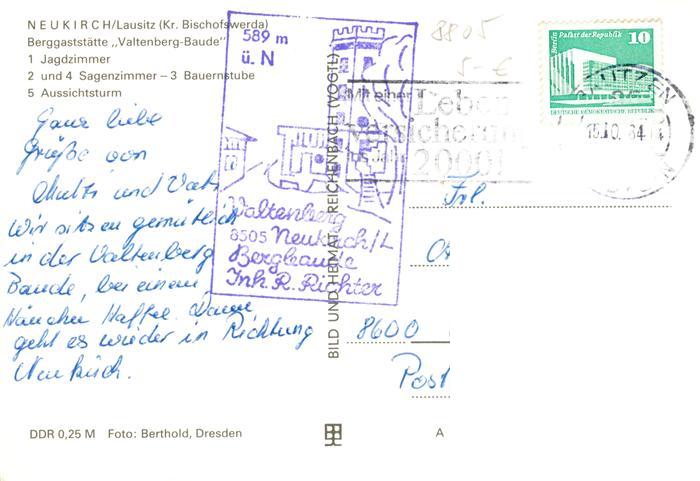 NEUKIRCH/Lausitz (Kr. Bischofswerda)
Berggaststätte „Valtenberg-Baude"
1 Jagdzimmer
2 und 4 Sagenzimmer – 3 Bauernstube
5 Aussichtsturm
Ganz liebe
Grüße von
Mutti und Vati
Wir sitzen gemütlich
in der Valtenberg
Baude, bei einem
Kännchen Kaffee. Dann
geht es wieder in Richtung
Neukirch.
DDR 0,25 M Foto: Berthold, Dresden
589 m
ü. N
Valtenberg
8505 Neukirch/L
Bergbaude
Inh. R. Richter
BILD UND HEIMAT REICHENBACH (VOGTL)
8805
5-€
Mit einer
Lebens
versicherung
2000!
Berlin Palast der Republik
10
DEUTSCHE DEMOKRATISCHE REPUBLIK
BAUTZEN
15.10.84
Frl.
8600
Post
A